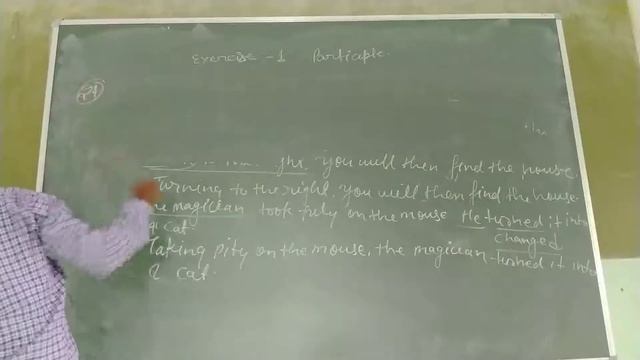 Exercise -1 Participle.
you will then find the house.
Turning to the right, you will then find the house.
magician took pity on the mouse He turned it into
a cat. changed
Taking pity on the mouse, the magician turned it into
a cat.